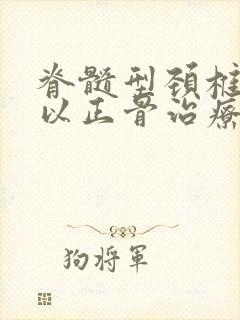 脊髓型颈椎
以正骨治療
狗将軍